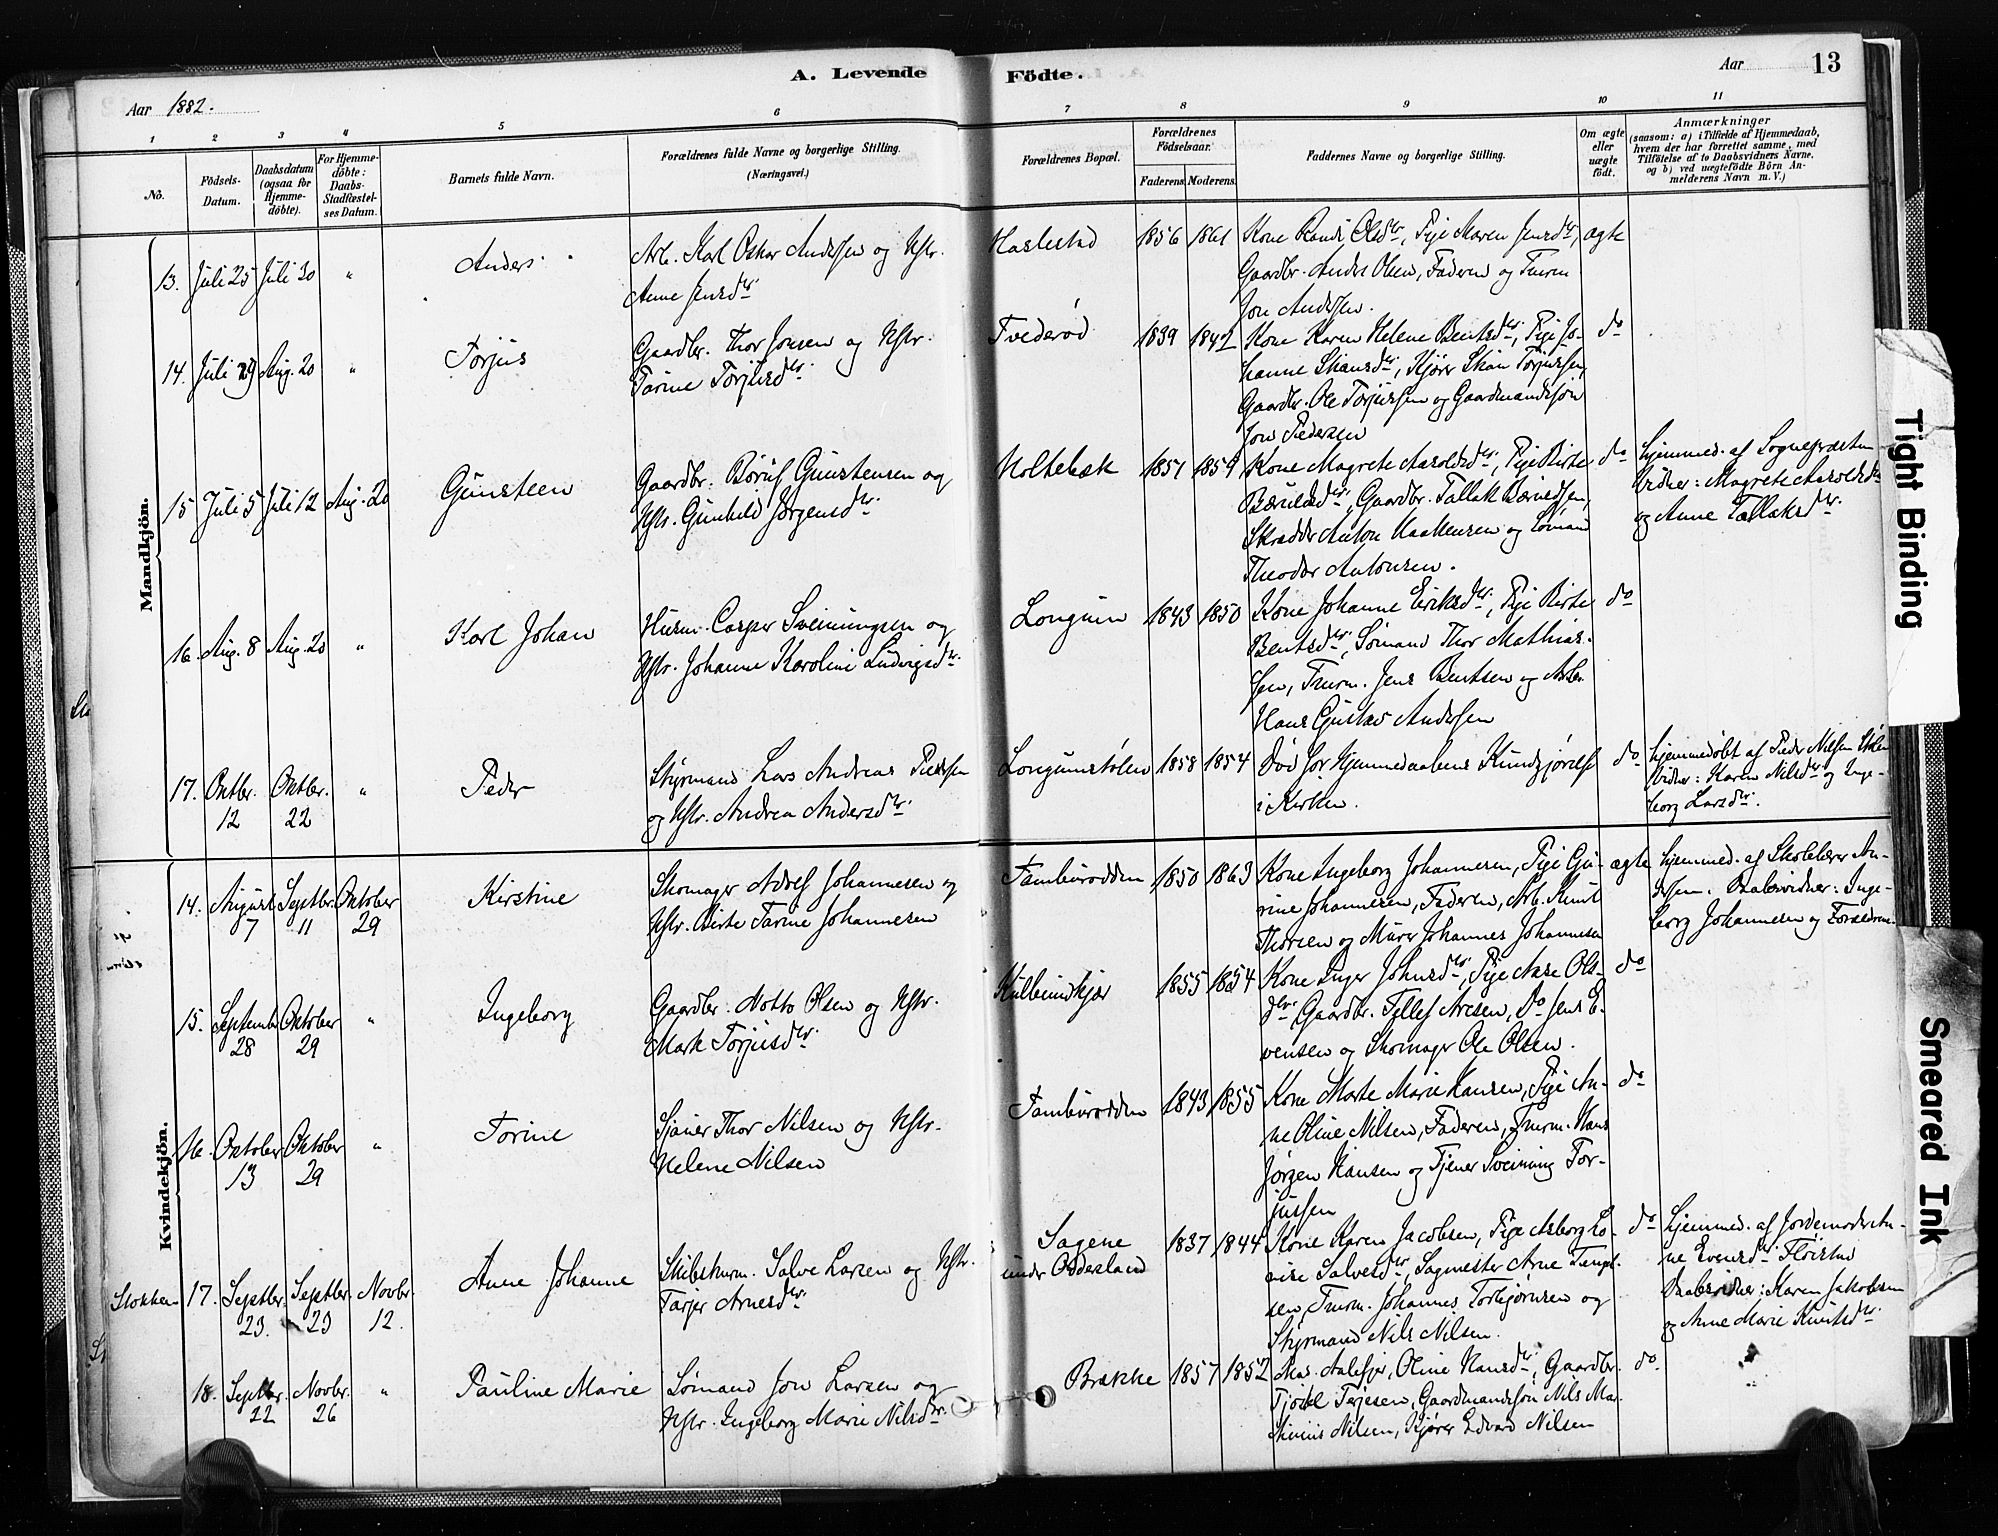 A. Levende
Födte.
Aar
13
Aar 1882.
1
2
3
4
5
6
7
8
9
10
11
No.
Födsels-
Datum.
Daabsdatum
(ogsaa for
Hjemme-
döbte).
For Hjemme-
döbte:
Daabs-
Stadfæstel-
ses Datum.
Barnets fulde Navn.
Forældrenes fulde Navne og borgerlige Stilling.
(Næringsvei.)
Forældrenes Bopæl.
Forældrenes
Födselsaar.
Faderens.
Moderens.
Faddernes Navne og borgerlige Stilling.
Om ægte
eller
uægte
födt.
Anmærkninger
(saasom: a) i Tilfælde af Hjemmedaab,
hvem der har forrettet samme, med
Tilföielse af to Daabsvidners Navne.
og b) ved uægtefödte Börn An-
melderens Navn m. V.)
Mandkjön.
13. Juli 25 Juli 30 " Anders
Arb. Karl Oskar Anderssen og Hstr.
Anne Jensdtr.
Haslestad 1856 1861
Kone Randi Olsdtr, Pige Maren Jensdtr,
Gaardbr. Anders Olsen, Faderen og Tmrm.
Jon Anderssen.
ægte
14. Juli 29 Aug. 20 " Torjus
Gaardbr. Thor Jonsen og Hstr.
Tarine Torjusdtr.
Tvederød 1839 1842
Kone Karen Helene Bentsdtr, Pige Jo-
hanne Skiansdtr, Kjører Skian Torjussen,
Gaardbr. Ole Torjussen og Gaardmandssøn
Jon Pedersen
do
15 Juli 5 Juli 12 Aug. 20 Gunsteen
Gaardbr. Børuf Gunstensen og
Hstr. Gunhild Jørgensdtr.
Holtebæk 1851 1859
Kone Magrete Aaroldsdtr, Pige Birte
Gaardbr. Tallak
Skrædder Anton Haakensen og Sømand
Theodor Antonsen.
do
hjemmed. af Sognepræsten
Vidner: Magrete Aaroldsdtr
og Anne Tallaksdtr.
16. Aug. 8 Aug. 20 " Karl Johan
Husm. Casper Sveinungsen og
Hstr. Johanne Karoline Ludvigsdtr.
Longum 1843 1850
Kone Johanne Eriksdtr, Pige Birte
Bentsdtr, Sømand Thor Mathias-
sen, Tmrm. Jens Bentsen og Arb.
Hans Gustav Anderssen
do
17. Oktbr. 12 Oktbr. 22 " Peder
Styrmand Lars Andreas Pederssen
og Hstr. Andrea Andersdtr.
Longumstølen 1858 1854
Død før Hjemmedaabens Kundgjørelse
i Kirken.
do
hjemmedøbt af Peder Nilsen
Vidner: Karen Nilsdtr og Inge-
borg Larsdtr.
Kvindekjön.
14. August 7 Septbr. 11 Oktober 29 Kirstine
Skomager Adolf Johannesen og
Hstr. Birte Tarine Johannesen
Tamburodden 1850 1863
Kone Ingeborg Johannesen, Pige Gu-
rine Johannesen, Faderen, Arb. Knut
Thorsen og Murer Johannes Johannesen
ægte
hjemmed. af Skolelærer An-
derssen. Daabsvidner: Inge-
borg Johannesen og Forældrene.
15. September 28 Oktober 29 " Ingeborg
Gaardbr. Notto Olsen og Hstr.
Marte Torjusdtr.
Kulbundkjær 1855 1854
Kone Inger Johnsdtr, Pige Aase Ols-
dtr, Gaardbr. Tellef Aresen, Do Jens E-
vensen og Skomager Ole Olsen.
do
16. Oktober 13 Oktober 29 " Torine
Sjauer Thor Nilsen og Hstr.
Helene Nilsen
Tamburodden 1843 1855
Kone Marte Marie Hansen, Pige An-
ne Oline Nilsen, Faderen, Tmrm. Hans
Jørgen Hansen og Tjener Sveinung Tor-
jussen
do
Stokken 17. Septbr. 23. Septbr. 23 Novbr. 12. Anne Johanne
Skibstmrm. Salve Larsen og Hstr.
Tarjer Arnesdtr.
Sagene
under Asdersland
1837 1844
Kone Karen Jacobsen, Pige Asborg Lo-
vise Salvesdtr, Sagmester Arne
sen, Tmrm. Johannes Torbjørnsen og
Styrmand Nils Nilsen.
do
hjemmed. af Jordemoder An-
ne Evensdtr Fløistad
Daabsvidner: Karen Jakobsen
og Anne Marie Knutsdtr.
18. Septbr. 22 Novbr. 26 " Pauline Marie
Sømand Jon Larsen og
Hstr. Ingeborg Marie Nilsdtr.
Brække 1857 1852
Oline Hansdtr, Gaardbr.
Terjesen, Gaardmandssøn Nils Mar-
thinius Nilsen, Kjører Edvard Nilsen
do.
Tight Binding
Smeared Ink